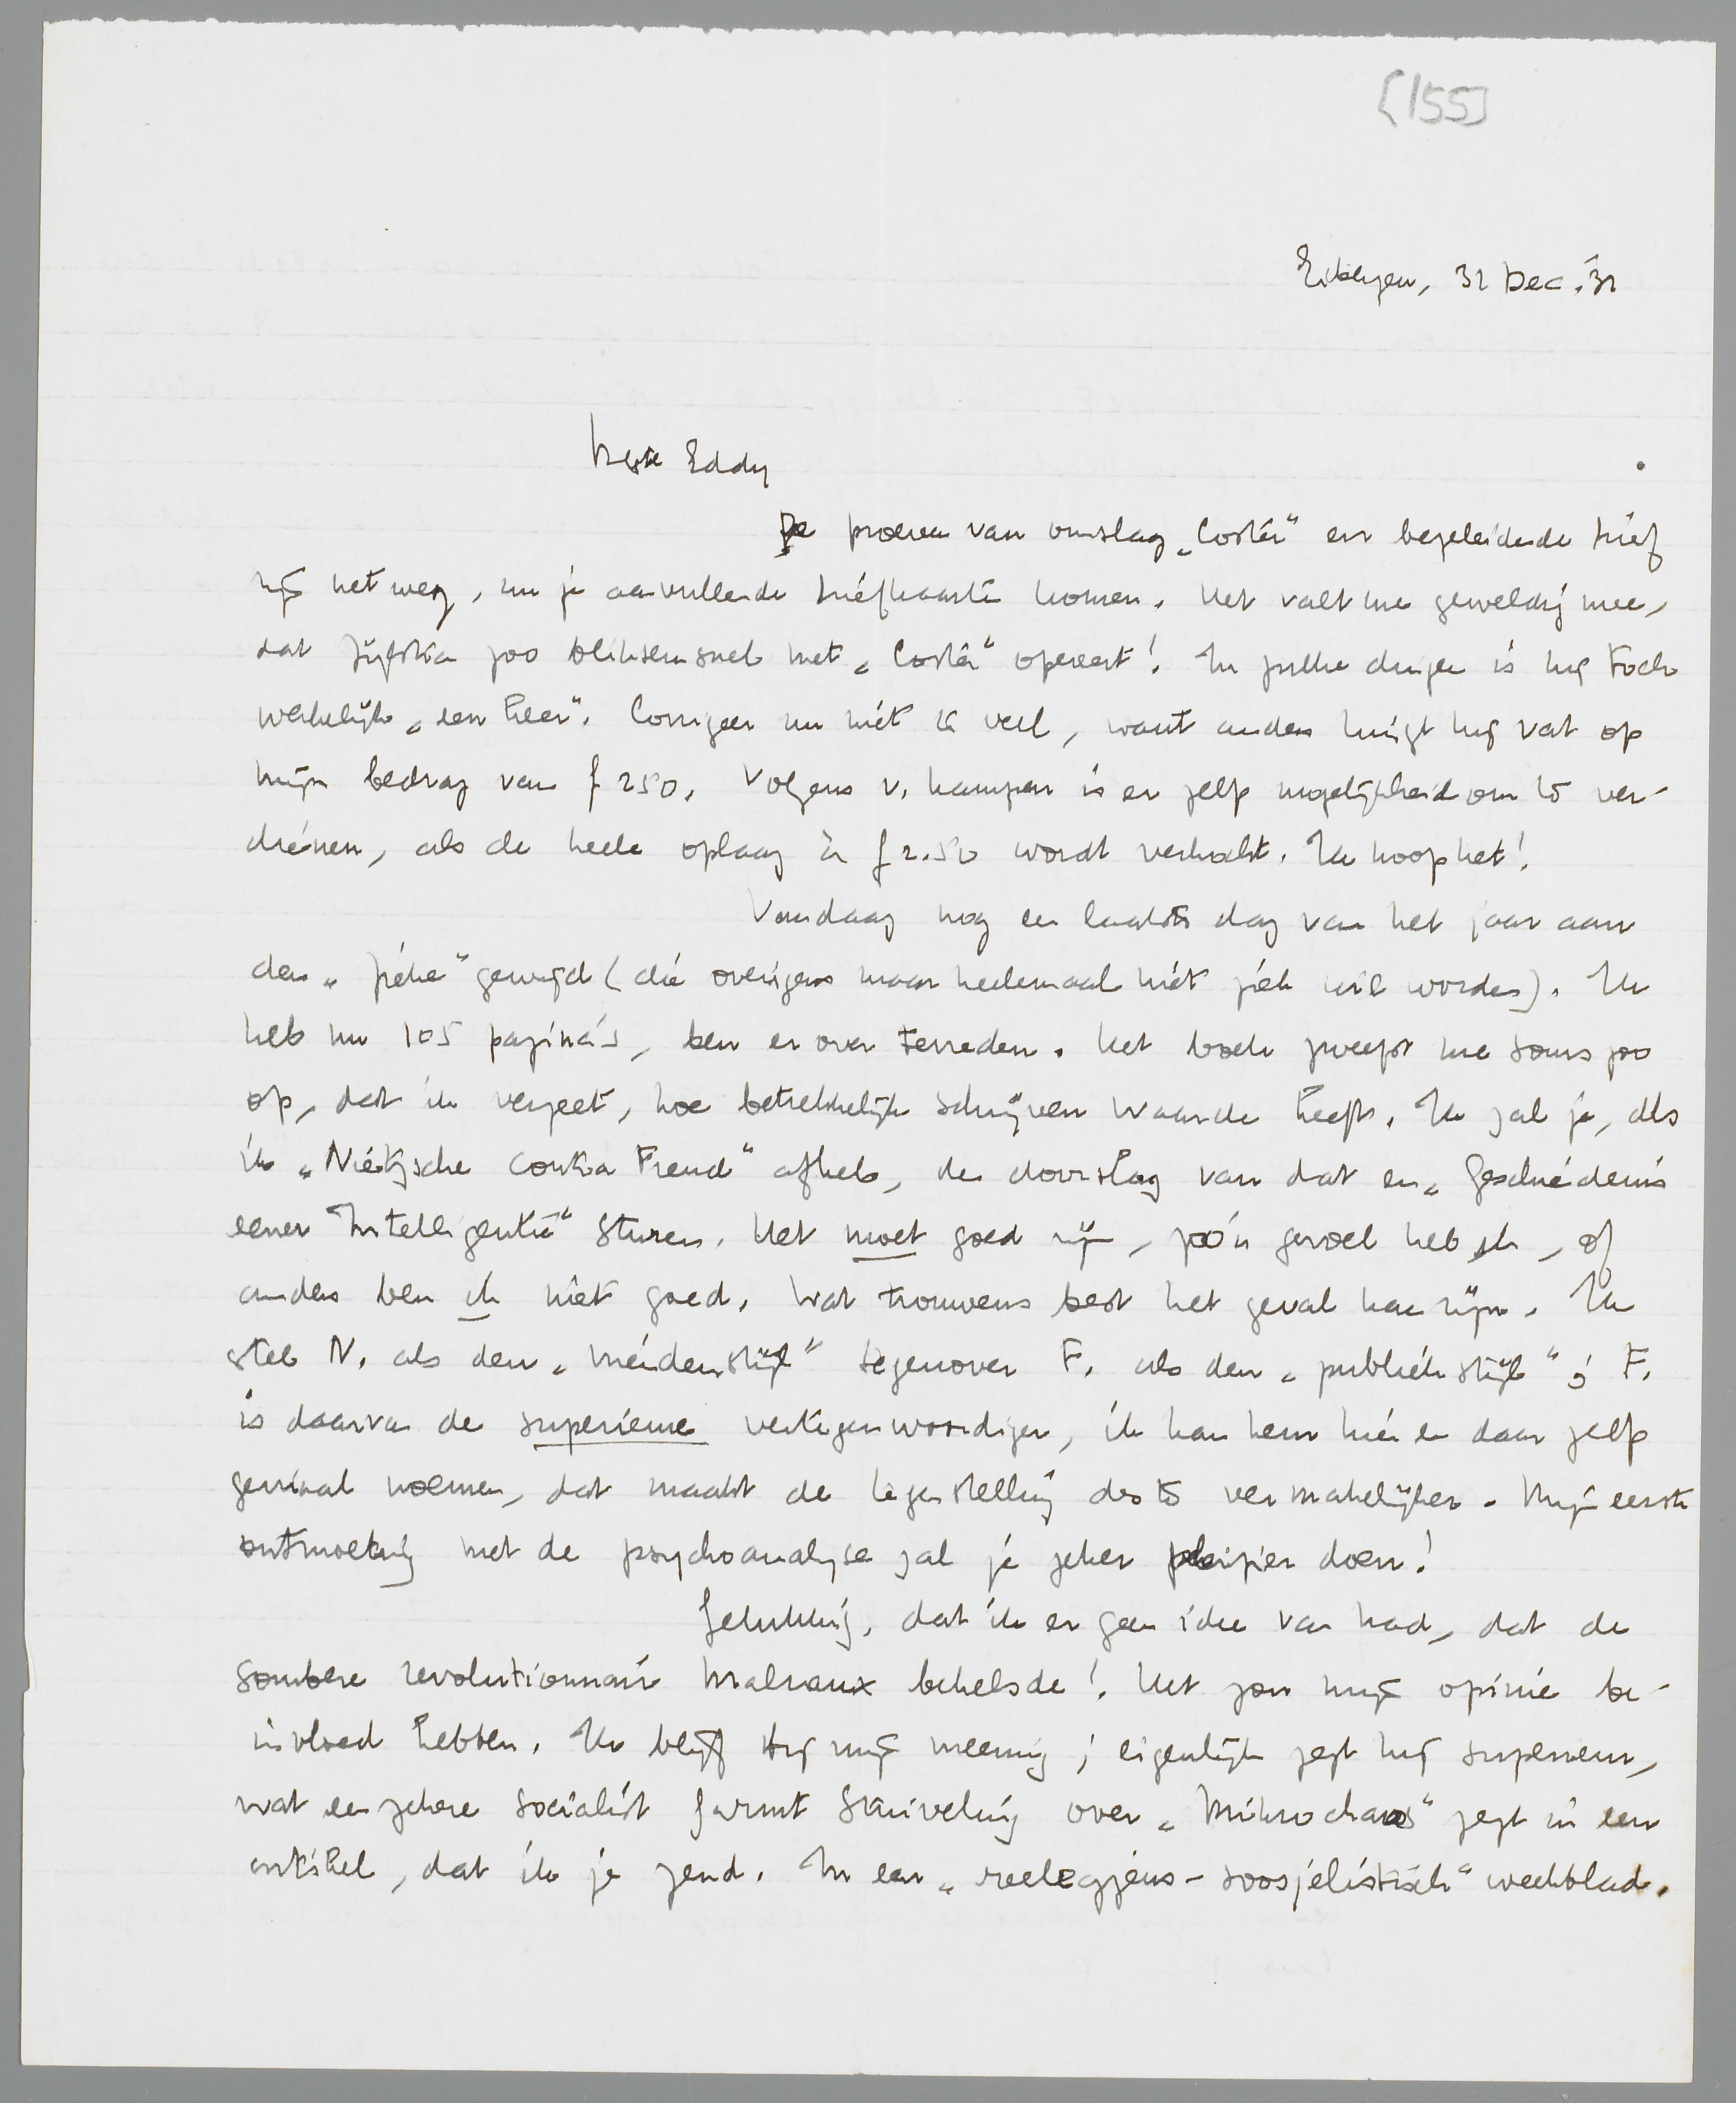 [155]
Eibergen, 31 Dec. '31
Beste Eddy
De proeven van omslag „Coster" en begeleidende brief
zijn net weg, nu je aanvullende briefkaarten komen. Het valt me geweldig mee,
dat Zijlstra zoo bliksemsnel met „Coster" opereert! In zulke dingen is hij toch
werkelijk „een heer". Corrigeer nu niet te veel, want anders krijgt hij vat op
mijn bedrag van f 250. Volgens v. Kampen is er zelfs mogelijkheid om te ver-
dienen, als de heele oplaag à f 2.50 wordt verkocht. Ik hoop het!
Vandaag nog een laatste dag van het jaar aan
den „zieke" gewijd (die overigens maar heelemaal niet ziek wil worden). Ik
heb nu 105 pagina's, ben er over tevreden. Het boek zweept me soms zoo
op, dat ik vergeet, hoe betrekkelijk schrijven waarde heeft. Ik zal je, als
ik „Nietzsche contra Freud" afheb, de doorslag van dat en „Geschiedenis
eener Intelligentie" sturen. Het moet goed zijn, zóó'n gevoel heb ik, of
anders ben ik niet goed. Wat trouwens best het geval kan zijn. Ik
stel N. als den „vriendenstijl" tegenover F. als den „publiekstijl"; F.
is daarvan de superieure vertegenwoordiger, ik kan hem hier en daar zelfs
geniaal noemen, dat maakt de tegenstelling des te vermakelijker. Mijn eerste
ontmoeting met de psychoanalyse zal je zeker plezier doen!
Gelukkig, dat ik er geen idee van had, dat de
sombere revolutionnair Malraux behelsde! Het zou mijn opinie be-
invloed hebben. Ik blijf bij mijn meening; eigenlijk zegt hij superieur,
wat een zekere socialist Garmt Stuiveling over „Mikrochaos" zegt in een
artikel, dat ik je zend. In een „reelegzjeus-soosjelistisch" weekblad.